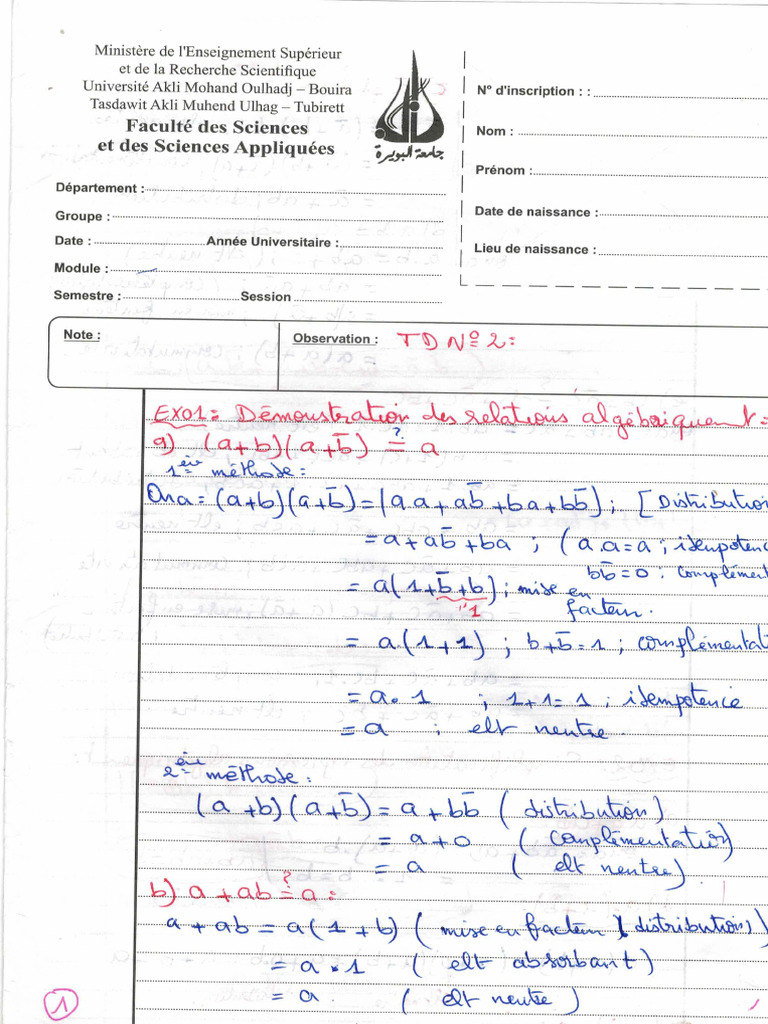 Ministère de l'Enseignement Supérieur
et de la Recherche Scientifique
Université Akli Mohand Oulhadj – Bouira
Tasdawit Akli Muhend Ulhag – Tubirett
Faculté des Sciences
et des Sciences Appliquées
جامعة البويرة
N° d'inscription : :
Nom :
Prénom :
Date de naissance :
Lieu de naissance :
Département :
Groupe :
Date : Année Universitaire :
Module :
Semestre : Session
Note :
Observation : TD N° 2 :
EX01 : Démonstration des relations algébriquement :
a) (a+b)(a+b̄) ≟ a
1ère méthode :
On a : (a+b)(a+b̄) = (a.a + ab̄ + ba + bb̄) ; [Distribution
= a + ab̄ + ba ; (a.a = a ; idempotence
bb̄ = 0 : complément
= a(1+b̄+b) ; mise en
facteur.
"1
= a(1+1) ; b+b̄ = 1 ; complémentati
= a.1 ; 1+1 = 1 ; idempotence
= a ; elt neutre.
2ère méthode :
(a+b)(a+b̄) = a + bb̄ (distribution)
= a+0 (complémentation)
= a (elt neutre)
b) a + ab ≟ a :
a + ab = a(1+b) (mise en facteur) (distribution)
= a.1 (elt absorbant)
= a (elt neutre)
1